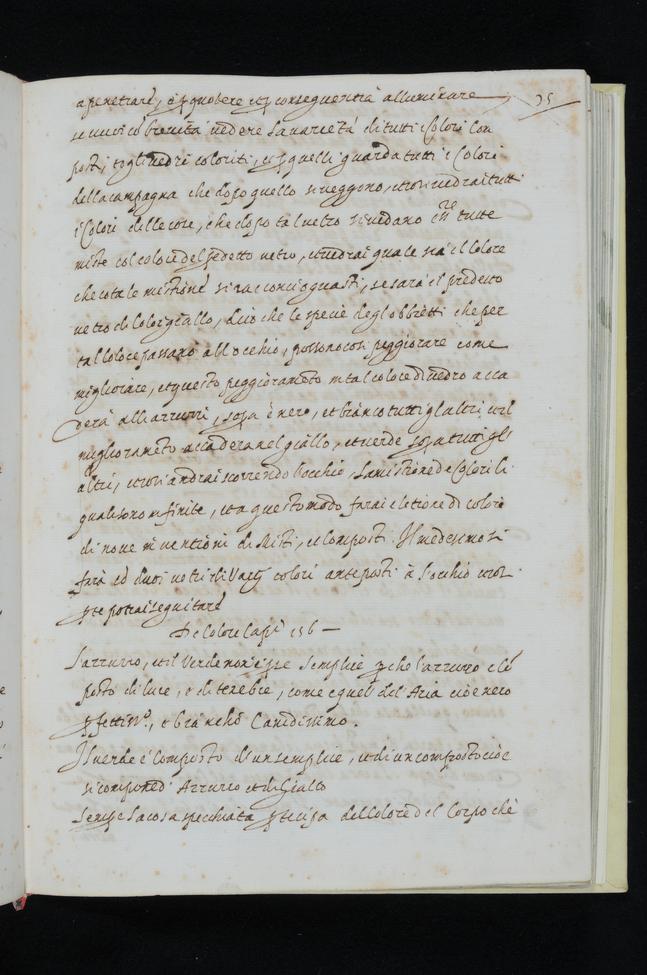 a penetrare, è ꝑ potere et ꝑ consequentia alluminare 35
se vuoi cō brevità vedere la varietà di tutti i Colori con
posti, togli vedri coloriti, et ꝑ quelli guarda tutti i Colori
della campagna che dopo quello si veggono, et così vedrai tutti
i Colori delle cose, che dopo tal vetro si vedano tutte
miste col colore del pᵈdetto vetro, et vedrai quale sia il Colore
che co tale mistione si racconci o guasti, se sarà il predetto
vetro di Color giallo, dico che le specie degl'obbietti che per
tal Colore passano all'occhio, possono così peggiorare come
migliorare, et questo peggioramēto in tal colore di vedro acca
derà all'azzurri, sopa è nero, et biāco tutti gl'altri, et il
miglioramēto accaderà nel giallo, et verde sopa tutti gl'
altri, et così andrai scorrendo l'occhio, la mistione de Colori li
quali sono infinite, et a questo modo farai eletione di colori
di nove inventioni di Misti, et Composti. Il medesimo si
farà cō duoi vetri di Varij colori anteposti à l'occhio et così
ꝑ te potrai seguitare
De Colore Capº 156 —
L'azzurro, et il Verde non è ꝑ se semplice ꝑchè l'azzurro è cō
posto di luce, e di tenebre, come è quel del Aria cioè nero
ꝑfettissᵒ, e biancho Canidissimo.
Il verde è Composto d'un semplice, et di un composto cioè
si compone d'Azzurro et di Giallo
Sempe la cosa specchiata ꝑtecipa del Colore del Corpo chè